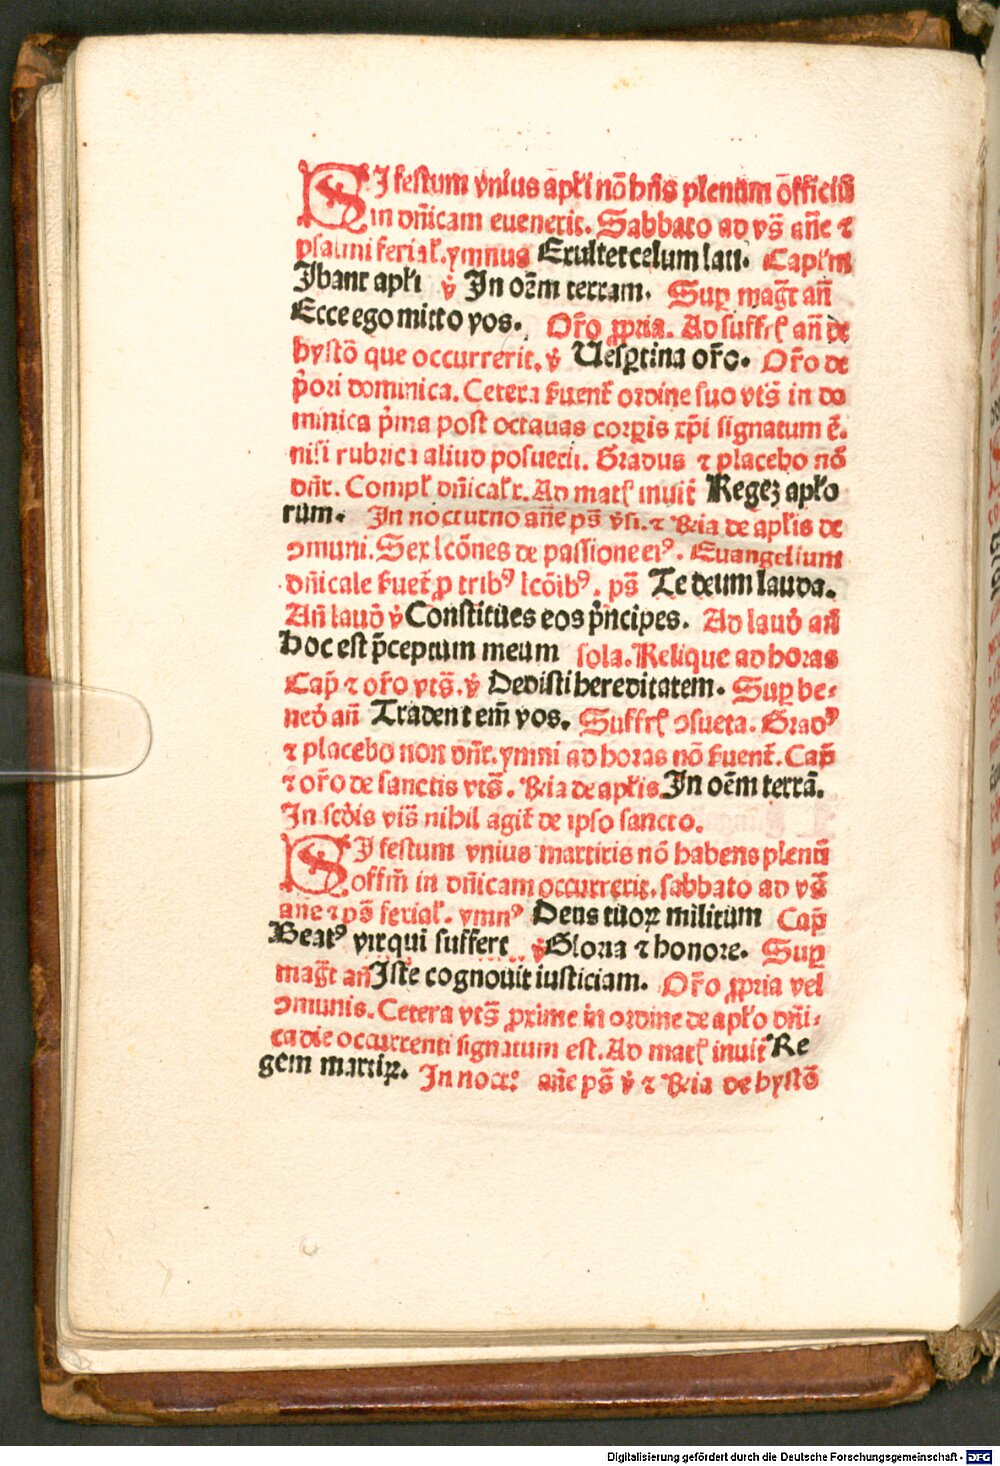 SI festum vnius apłi nō hñs plenum officiū
in dñicam euenerit. Sabbato ad vs̃ añe ⁊
psalmi ferial̃. ymnus Exultet celum lau. Capłm
Ibant apłi v̉ In oẽm terram. Sup magt̃ añ
Ecce ego mitto vos. Oro ꝓpria. Ad suffrł añ de
hystō que occurrerit. v̉ Uesꝑtina oro. Oro de
p̉ori dominica. Cetera ẜuent̃ ordine suo vts̃ in do
minica p̉ma post octauas corꝑis xp̄i signatum ē.
nisi rubrica aliud posuerit. Gradus ⁊ placebo nō
dñr. Compł dñicalr̃. Ad matł inuit̃ Regeȝ apło
rum. In nocturno añe ps̃ v̉si. ⁊ R̃ia de apłis de
ↄmuni. Sex lcōnes de passione eiꝰ. Euangelium
dñicale ẜuet̃ ꝓ tribꝰ lcōibꝰ. ps̃ Te deum lauda.
Añ laud̉ v̉ Constitues eos p̉ncipes. Ad laud̉ añ
Hoc est p̄ceptum meum sola. Relique ad horas
Cap̄ ⁊ oro vts̃. v̉ Dedisti hereditatem. Suꝑ be-
ned̉ añ Tradent em̄ vos. Suffrł ↄsueta. Gradꝰ
⁊ placebo non dñr. ymni ad horas nō ẜuent̃. Cap̄
⁊ oro de sanctis vts̃. R̃ia de apłis In oẽm terrā.
In scd̉is vis̃ nihil agit̃ de ipso sancto.
SI festum vnius martiris nō habens plenū
offm̄ in dñicam occurrerit. sabbato ad vs̃
añe ⁊ ps̃ ferial̃. ymnꝰ Deus tuoꝝ militum Cap̄
Beatꝰ vir qui suffert v̉ Gloria ⁊ honore. Suꝑ
magt̃ añ Iste cognouit iusticiam. Oro ꝓpria vel
ↄmunis. Cetera vts̃ ꝓxime in ordine de apło dñi-
ca die occurrenti signatum est. Ad matł inuit̃ Re
gem martiꝝ. In noct: añe ps̃ v̉ ⁊ R̃ia de hystō
Digitalisierung gefördert durch die Deutsche Forschungsgemeinschaft - DFG